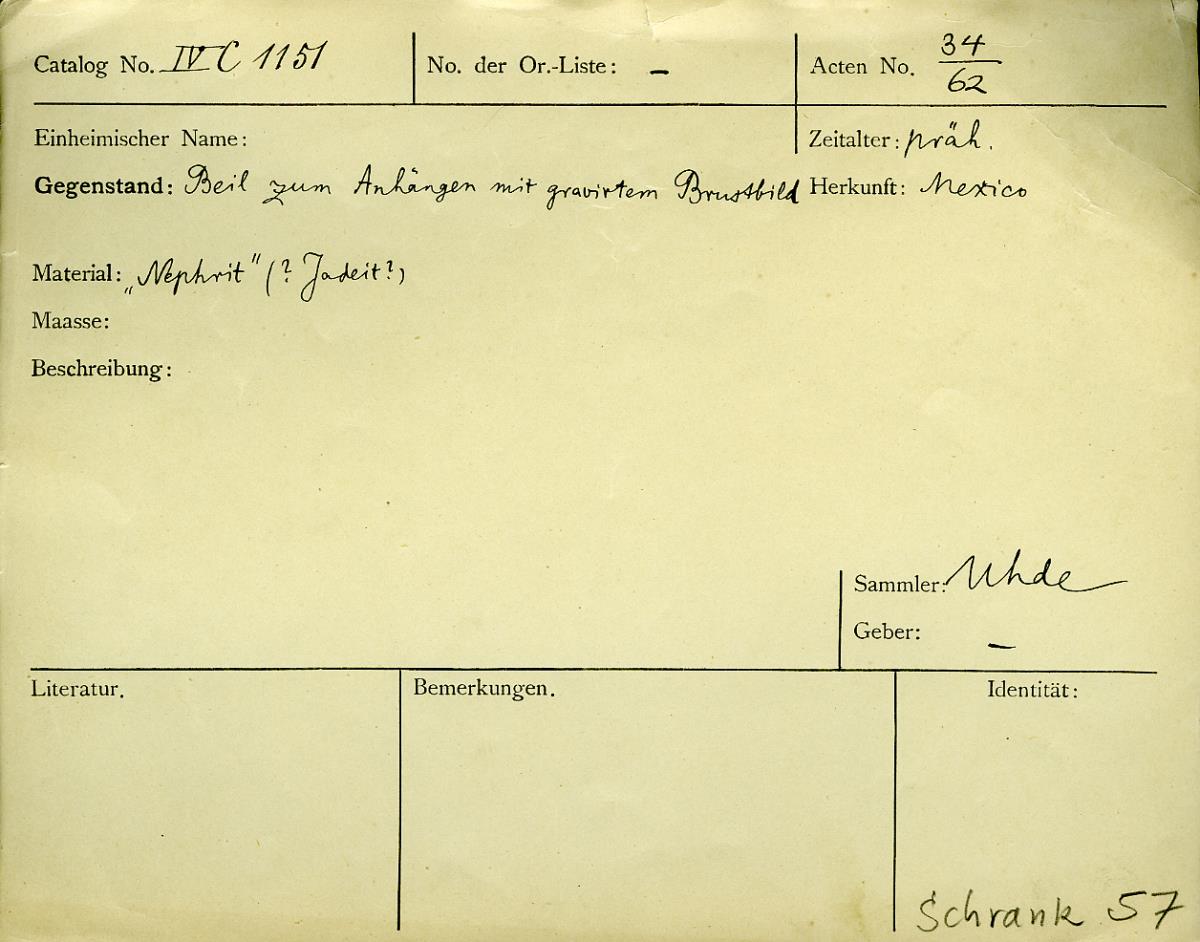 Catalog No. IV C 1151 No. der Or.-Liste: – Acten No. 34/62
Einheimischer Name: Zeitalter: präh.
Gegenstand: Beil zum Anhängen mit gravirtem Brustbild Herkunft: Mexico
Material: „Nephrit" (? Jadeit?)
Maasse:
Beschreibung:
Sammler: Uhde
Geber: –
Literatur. Bemerkungen. Identität:
Schrank 57